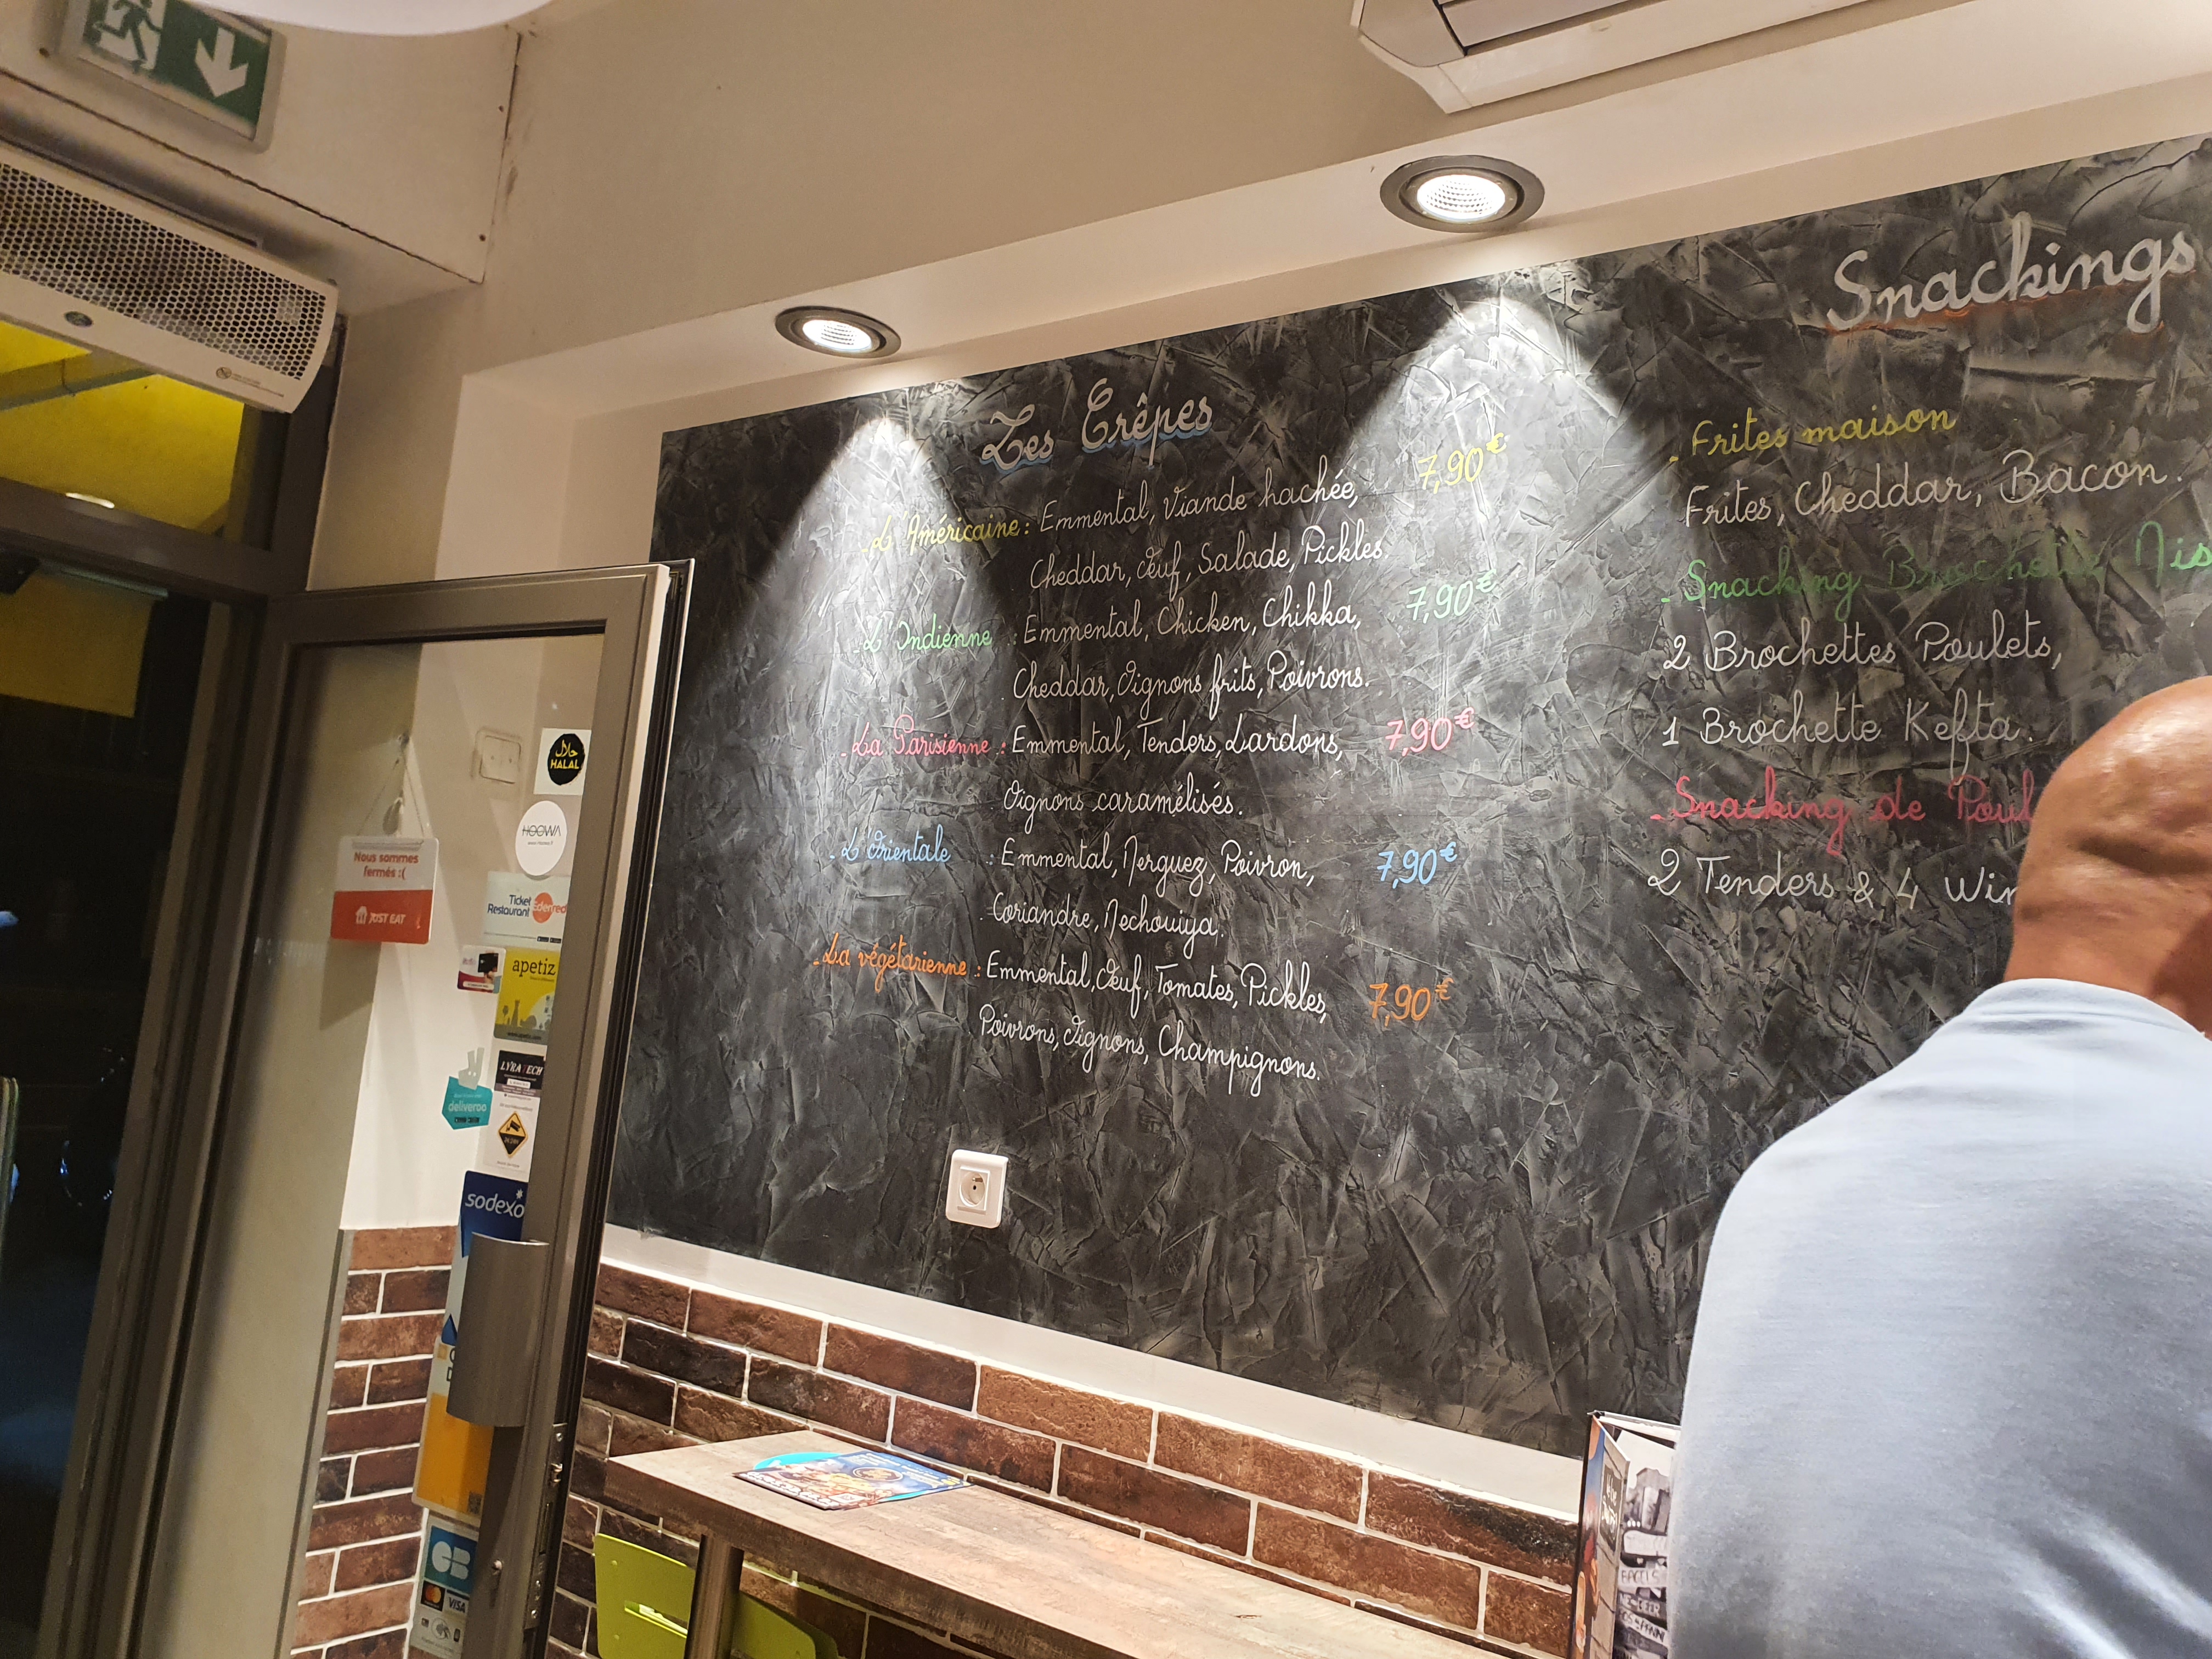 Les Crêpes
- L'Américaine : Emmental, Viande hachée, 7,90€
Cheddar, Œuf, Salade, Pickles.
- L'Indienne : Emmental, Chicken, Chikka, 7,90€
Cheddar, Oignons frits, Poivrons.
- La Parisienne : Emmental, Tenders, Lardons, 7,90€
Oignons caramélisés.
- L'Orientale : Emmental, Merguez, Poivron, 7,90€
Coriandre, Mechouiya.
- La végétarienne : Emmental, Œuf, Tomates, Pickles, 7,90€
Poivrons, Oignons, Champignons.
Snackings
- Frites maison
Frites, Cheddar, Bacon.
- Snacking Brochette
2 Brochettes Poulets,
1 Brochette Kefta.
- Snacking de
2 Tenders & 4
حلال
HALAL
HOOWA
Nous sommes
fermés :(
JUST EAT
Ticket
Restaurant
Edenred
apetiz
LYRATECH
deliveroo
sodexo
CB
VISA